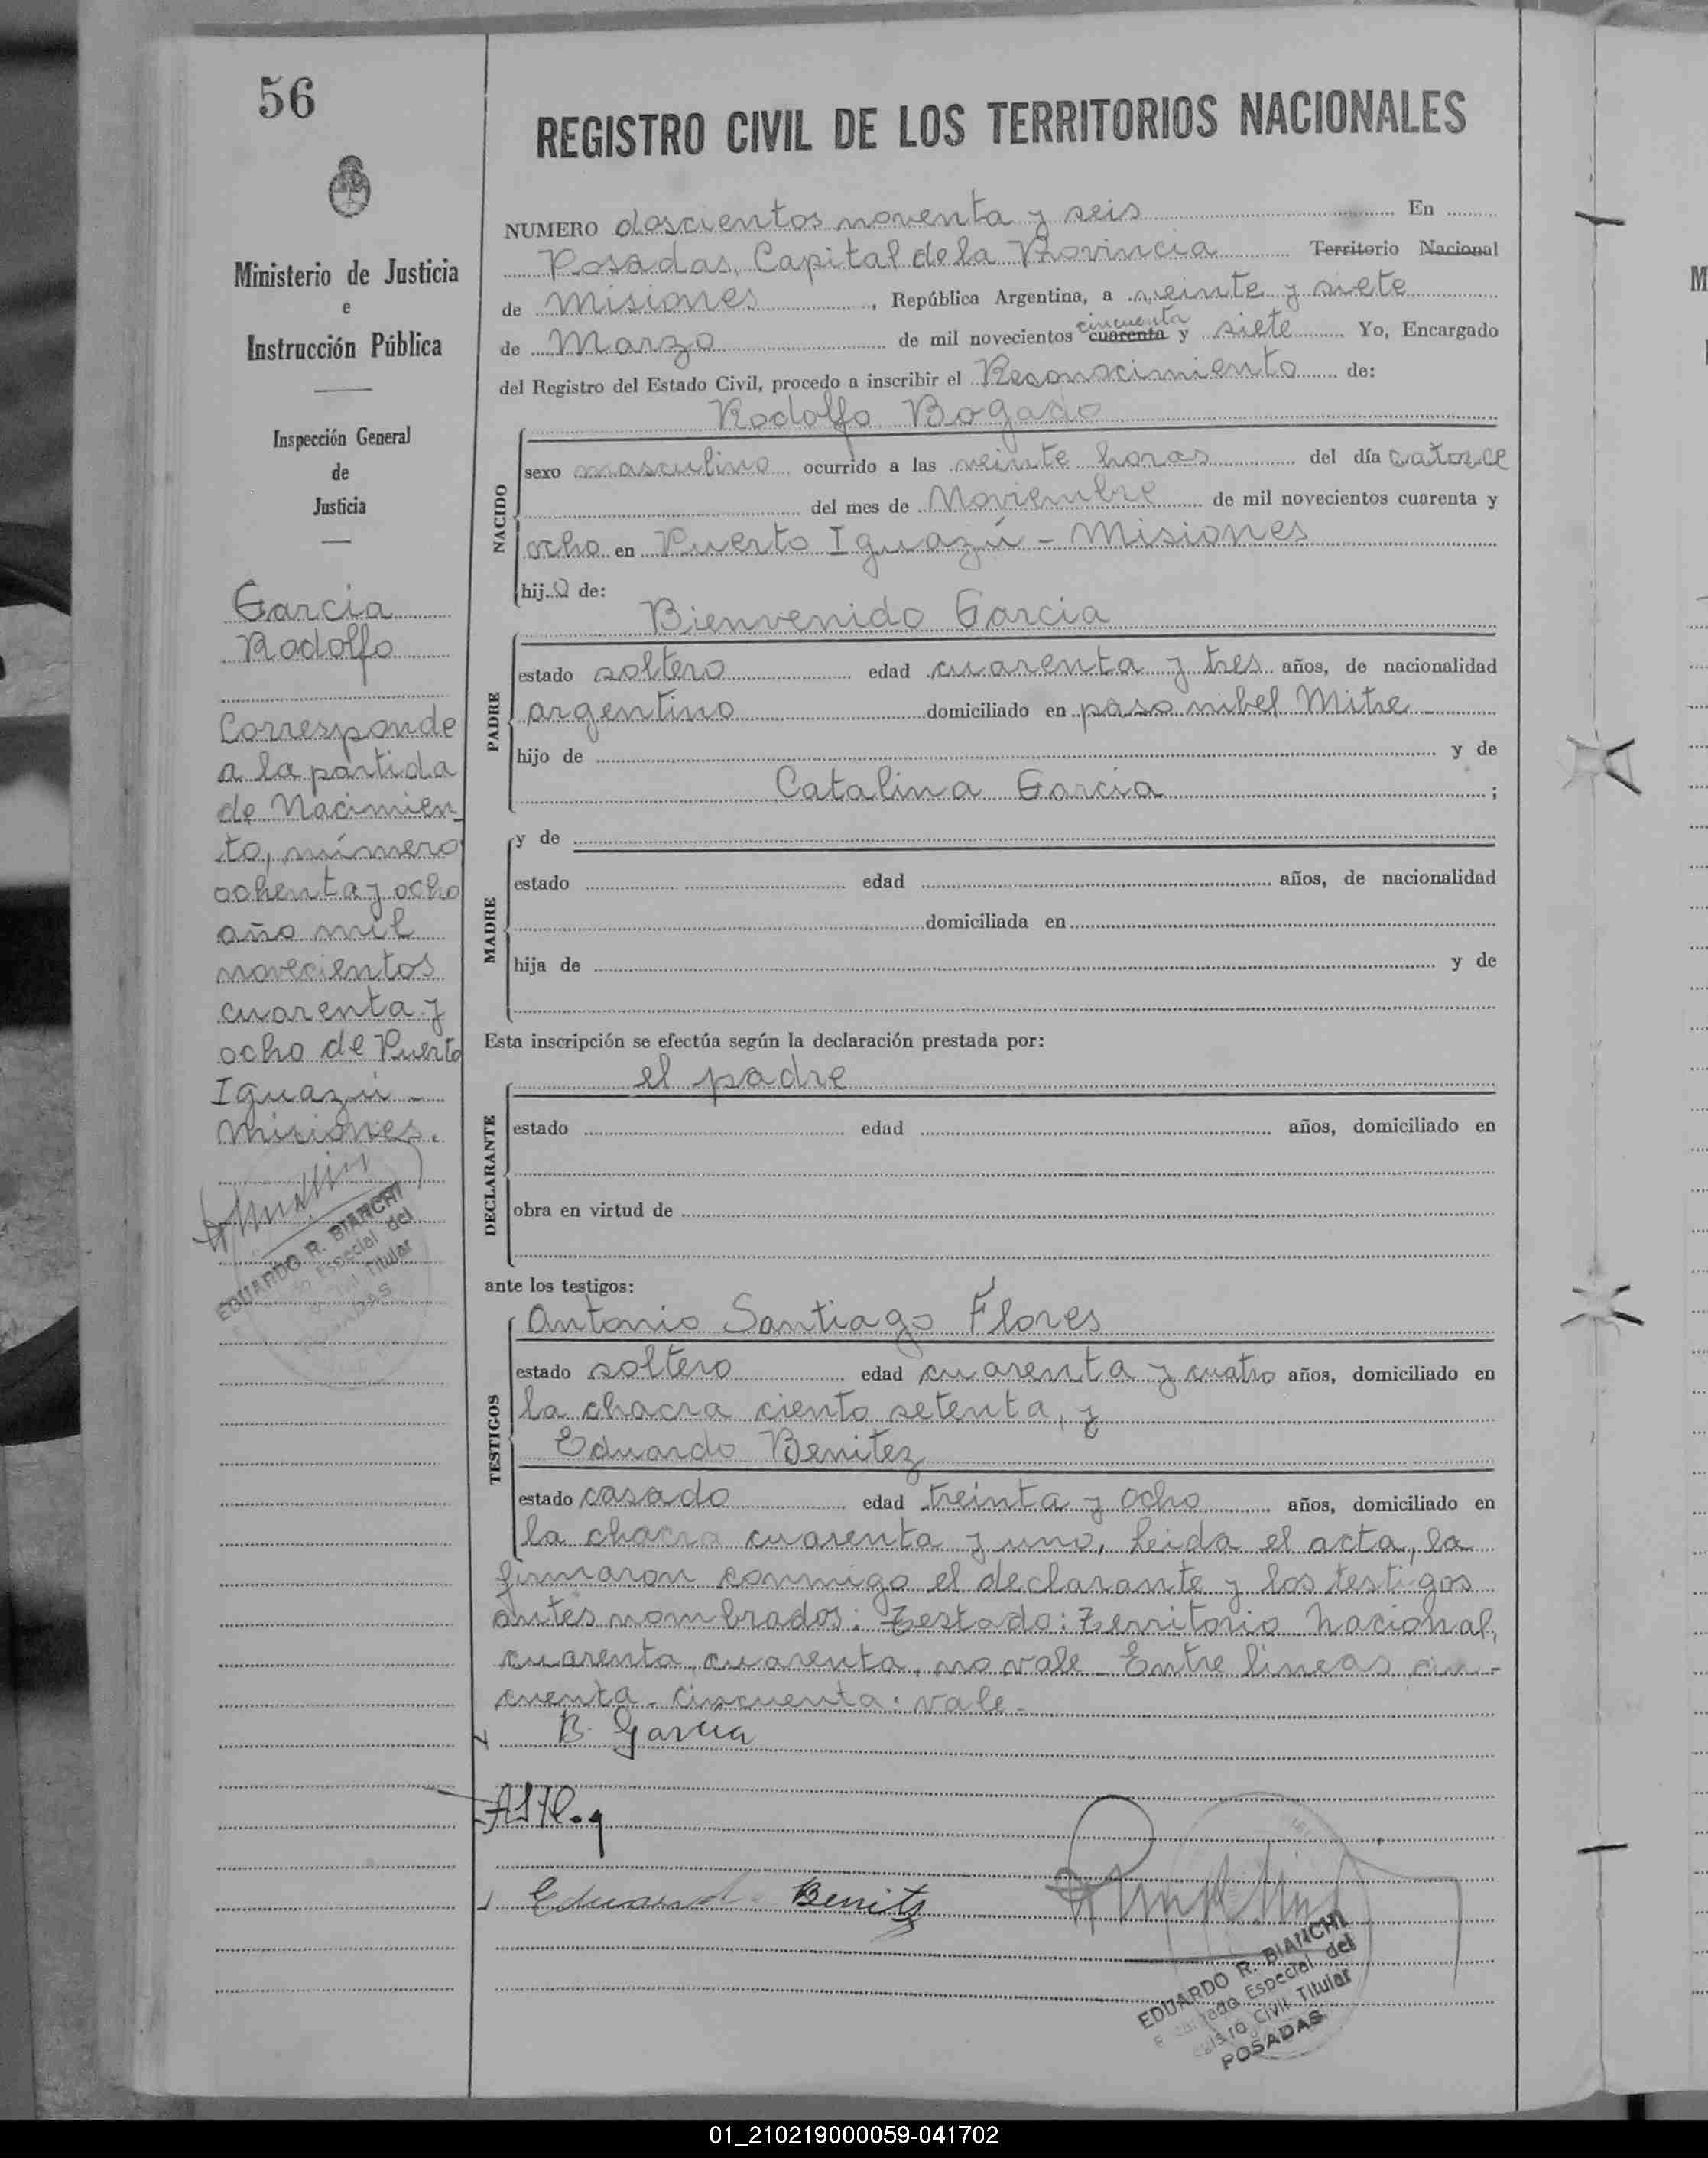 56
Ministerio de Justicia
e
Instrucción Pública
Inspección General
de
Justicia
Garcia
Rodolfo
Corresponde
a la partida
de Nacimien_
to, número
ochenta y ocho
año mil
novecientos
cuarenta y
ocho de Puerto
Iguazú -
Misiones.
EDUARDO R. BIANCHI
Especial del
Titular
POSADAS
REGISTRO CIVIL DE LOS TERRITORIOS NACIONALES
NUMERO doscientos noventa y seis En
Posadas, Capital de la Provincia Territorio Nacional
de Misiones, República Argentina, a veinte y siete
cincuenta
de Marzo de mil novecientos cuarenta y siete Yo, Encargado
del Registro del Estado Civil, procedo a inscribir el Reconocimiento de:
Rodolfo Bogado
NACIDO
sexo masculino ocurrido a las veinte horas del día catorce
del mes de Noviembre de mil novecientos cuarenta y
ocho en Puerto Iguazú - Misiones
hijo de:
Bienvenido Garcia
PADRE
estado soltero edad cuarenta y tres años, de nacionalidad
argentino domiciliado en paso nibel Mitre -
hijo de y de
Catalina Garcia ;
MADRE
y de
estado edad años, de nacionalidad
domiciliada en
hija de y de
Esta inscripción se efectúa según la declaración prestada por:
el padre
DECLARANTE
estado edad años, domiciliado en
obra en virtud de
ante los testigos:
Antonio Santiago Flores
TESTIGOS
estado soltero edad cuarenta y cuatro años, domiciliado en
la chacra ciento setenta, y
Eduardo Benitez
estado casado edad treinta y ocho años, domiciliado en
la chacra cuarenta y uno, Leida el acta, la
firmaron conmigo el declarante y los testigos
antes nombrados: Testado: Territorio Nacional,
cuarenta, cuarenta, no vale - Entre lineas cin-
cuenta - cincuenta: vale -
B. Garcia
Eduardo Benitz
EDUARDO R. BIANCHI
Encargado Especial del
Registro Civil Titular
POSADAS
01_210219000059-041702